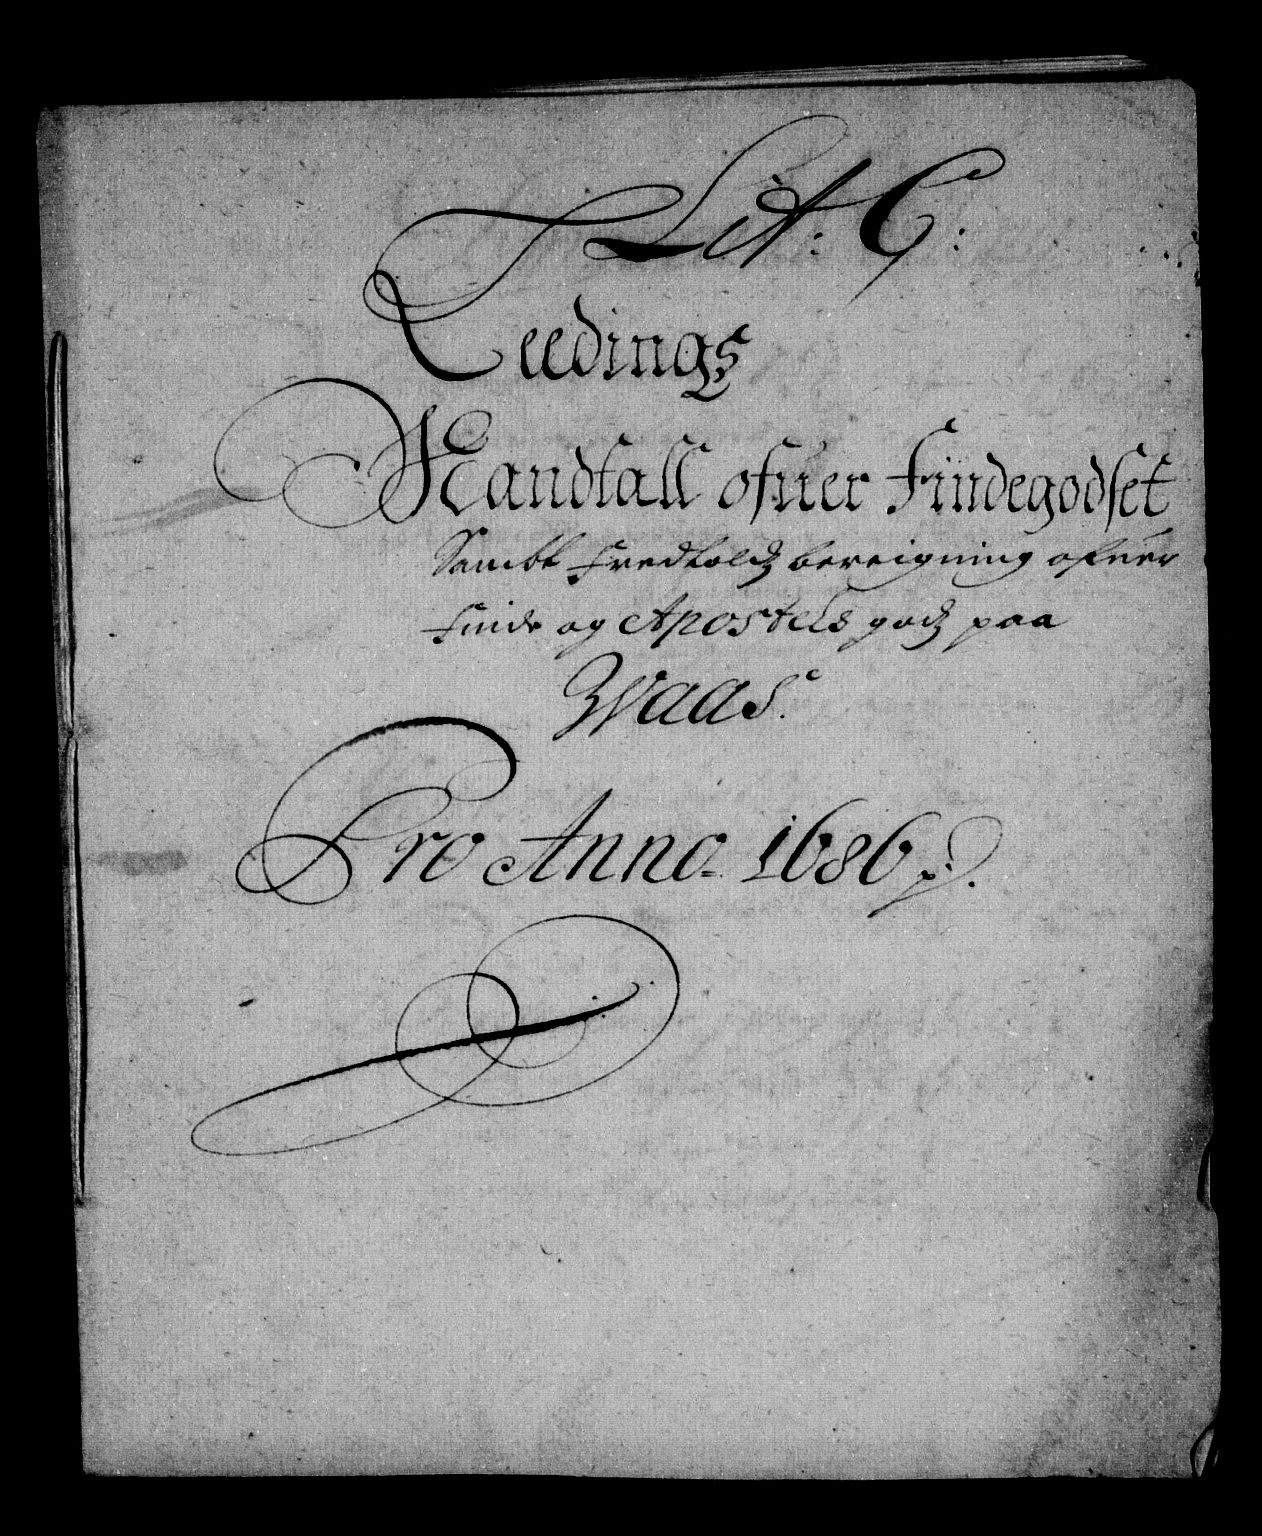 Lit: C:
Leedings
Mandtall ofuer Findegodset
Sambt Fredtolds bereigning ofuer
Finde og Apostels gods paa
Waas.
Pro Anno 1686